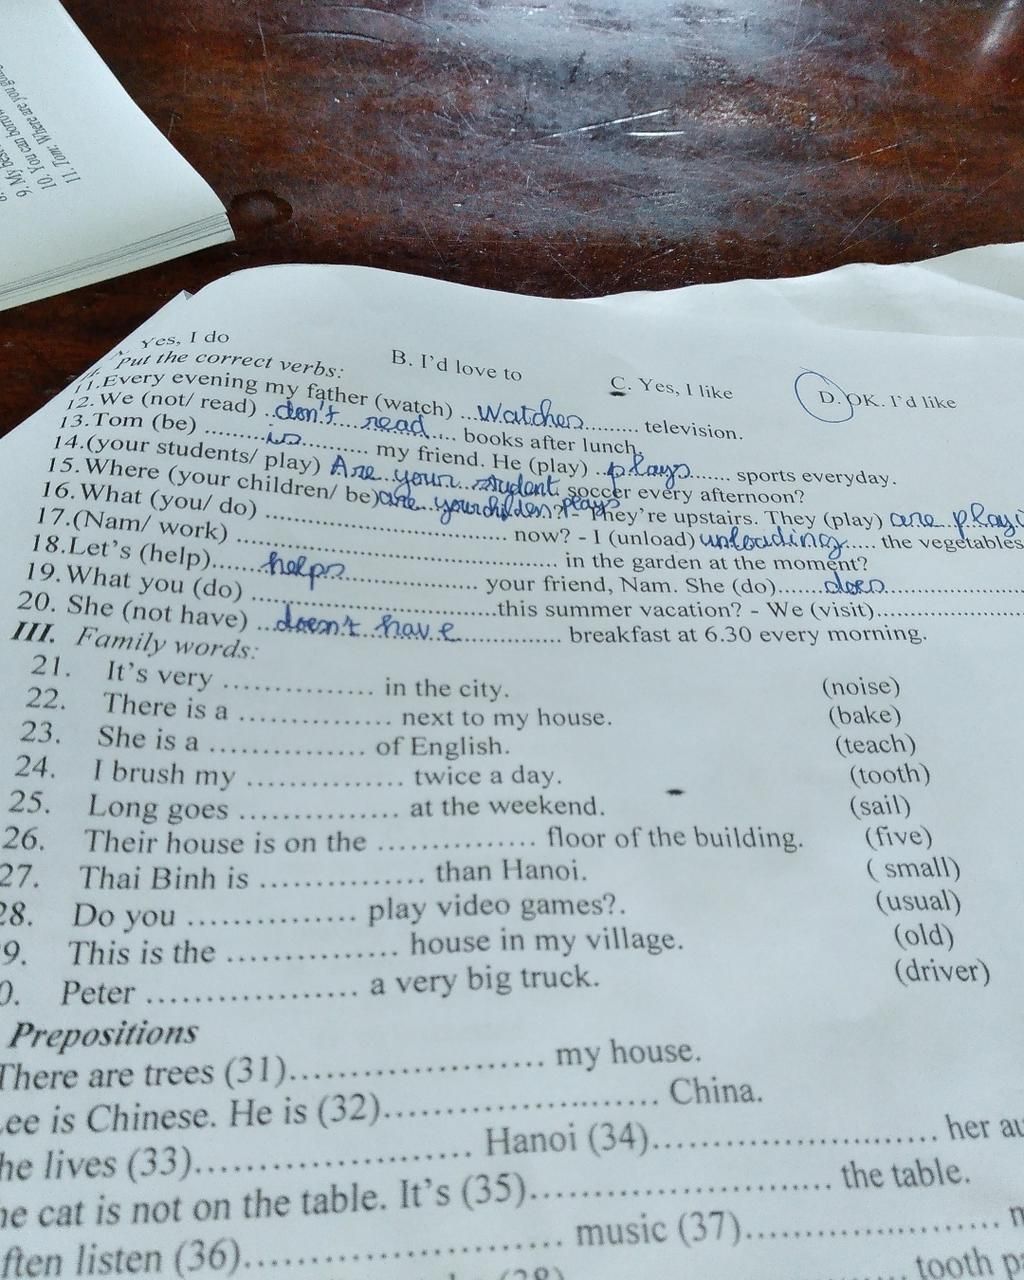 9. My bes
10. You can borrow
11. Tom: Where are you going
Yes, I do B. I'd love to C. Yes, I like D. OK. I'd like
put the correct verbs:
11. Every evening my father (watch) ...Watches......... television.
12. We (not/ read) ..don't....read..... books after lunch.
13. Tom (be) .........is.......... my friend. He (play) ..plays....... sports everyday.
14.(your students/ play) Are your student plays soccer every afternoon?
15. Where (your children/ be)are..your childen? - They're upstairs. They (play) are play
16. What (you/ do) ................................... now? - I (unload) unloading..... the vegetables
17.(Nam/ work) .............................................. in the garden at the moment?
18. Let's (help).......helps................... your friend, Nam. She (do).......does...................
19. What you (do) ...................................this summer vacation? - We (visit).....................
20. She (not have) ...doesn't..have............... breakfast at 6.30 every morning.
III. Family words:
21. It's very ............... in the city. (noise)
22. There is a ............... next to my house. (bake)
23. She is a ............... of English. (teach)
24. I brush my ............... twice a day. (tooth)
25. Long goes ............... at the weekend. (sail)
26. Their house is on the ............... floor of the building. (five)
27. Thai Binh is ............... than Hanoi. ( small)
28. Do you ................ play video games?. (usual)
9. This is the ................ house in my village. (old)
0. Peter .................... a very big truck. (driver)
Prepositions
There are trees (31)........................ my house.
ee is Chinese. He is (32)......................... China.
he lives (33)........................ Hanoi (34)......................... her au
he cat is not on the table. It's (35)........................... the table.
ften listen (36)........................... music (37)......................
(38) tooth p